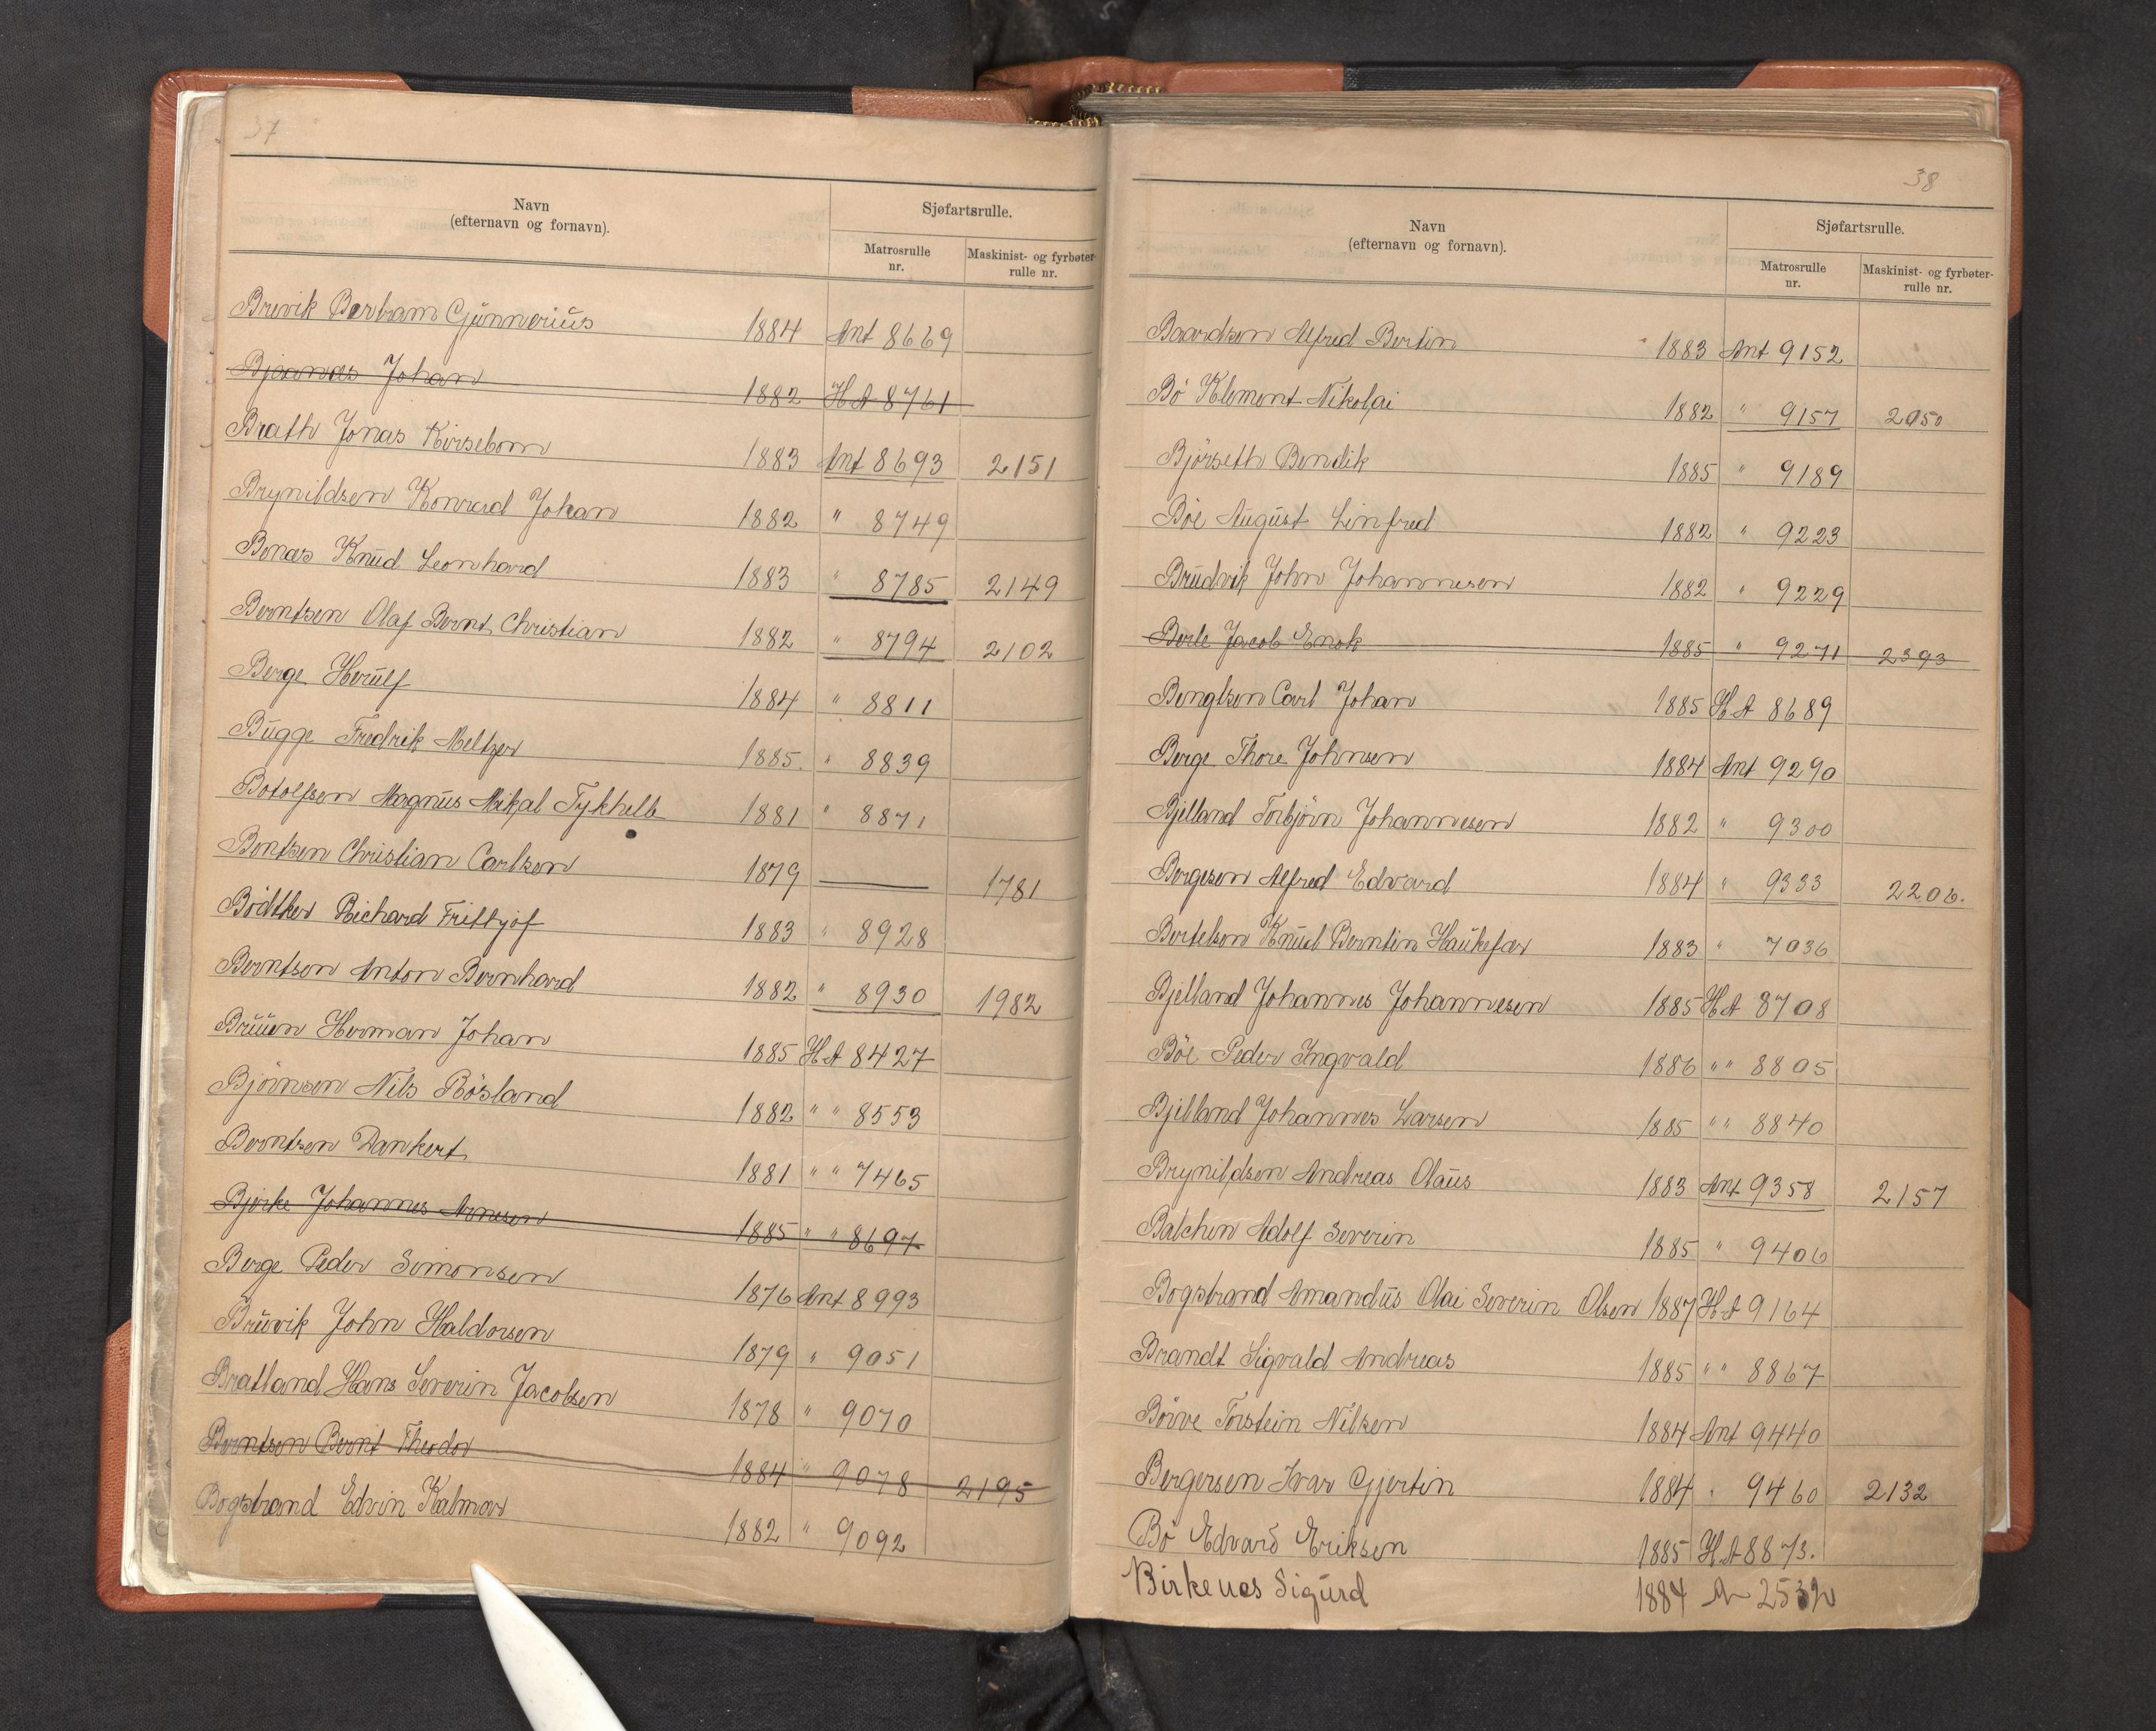 37
Navn
(efternavn og fornavn).
Sjøfartsrulle.
Matrosrulle
nr.
Maskinist- og fyrbøter-
rulle nr.
Brevik Bertram Gunnerius 1884 Ant 8669
Bjoanæs Johan 1882 H A 8761
Brath Jonas Kirsebom 1883 Ant 8693 2151
Brynildsen Konrad Johan 1882 " 8749
Bonæs Knud Leonhard 1883 " 8785 2149
Berntsen Olaf Bernt Christian 1882 " 8794 2102
Berge Herulf 1884 " 8811
Bugge Fredrik Meltzer 1885. " 8839
Botolfsen Magnus Mikal Tykhelle 1881 " 8871
Bentsen Christian Carlsen 1879 — 1781
Bödtker Richard Frittjof 1883 " 8928
Berntsen Anton Bernhard 1882 " 8930 1982
Bruun Herman Johan 1885 H A 8427
Bjørnsen Nils Røsland 1882 " " 8553
Berntsen Dankert 1881 " " 7465
Bjørke Johannes Arnesen 1885 " " 8697
Berge Peder Simonsen 1876 Ant 8993
Bruvik John Haldorsen 1879 " 9051
Bratland Hans Severin Jacobsen 1878 " 9070
Berntsen Bernt Theodor 1884 " 9078 2195
Bogstrand Edvin Kalmar 1882 " 9092
38
Navn
(efternavn og fornavn).
Sjøfartsrulle.
Matrosrulle
nr.
Maskinist- og fyrbøter-
rulle nr.
Baardsen Alfred Bertin 1883 Ant 9152
Bö Klement Nikolai 1882 " 9157 2050
Bjørseth Bendik 1885 " 9189
Böe August Linfred 1882 " 9223
Brudvik John Johannesen 1882 " 9229
Berle Jacob Enok 1885 " 9271 2393
Bengtsen Carl Johan 1885 H A 8689
Berge Thore Johnsen 1884 Ant 9290
Bjelland Torbjörn Johannesen 1882 " 9300
Bergesen Alfred Edvard 1884 " 9333 2206.
Bertelsen Knud Berntin Haukefær 1883 " 7036
Bjelland Johannes Johannesen 1885 H A 8708
Böe Peder Ingvald 1886 " " 8805
Bjelland Johannes Larsen 1885 " " 8840
Brynildsen Andreas Olaus 1883 Ant 9358 2157
Balchen Adolf Severin 1885 " 9406
Bogstrand Amandus Olai Severin Olsen 1887 H A 9164
Brandt Sigvald Andreas 1885 " " 8867
Börve Torstein Nilsen 1884 Ant 9440
Bergersen Ivar Gjertin 1884 " 9460 2132
Bö Edvard Eriksen 1885 H A 8873.
Birkenes Sigurd 1884